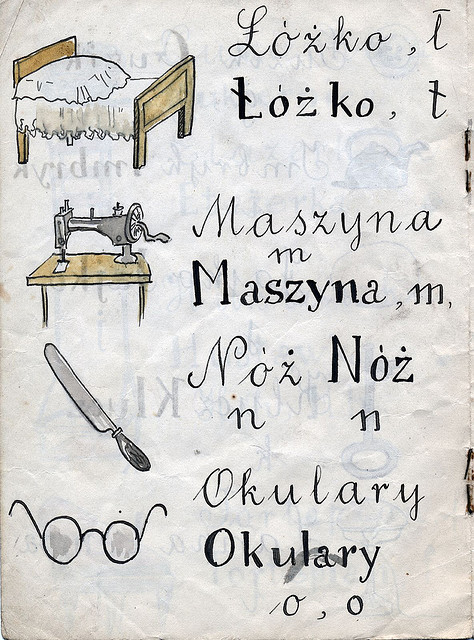 Łóżko, ł
Łóżko, ł
Maszyna
m
Maszyna, m,
Nóż Nóż
n n
Okulary
Okulary
o, o